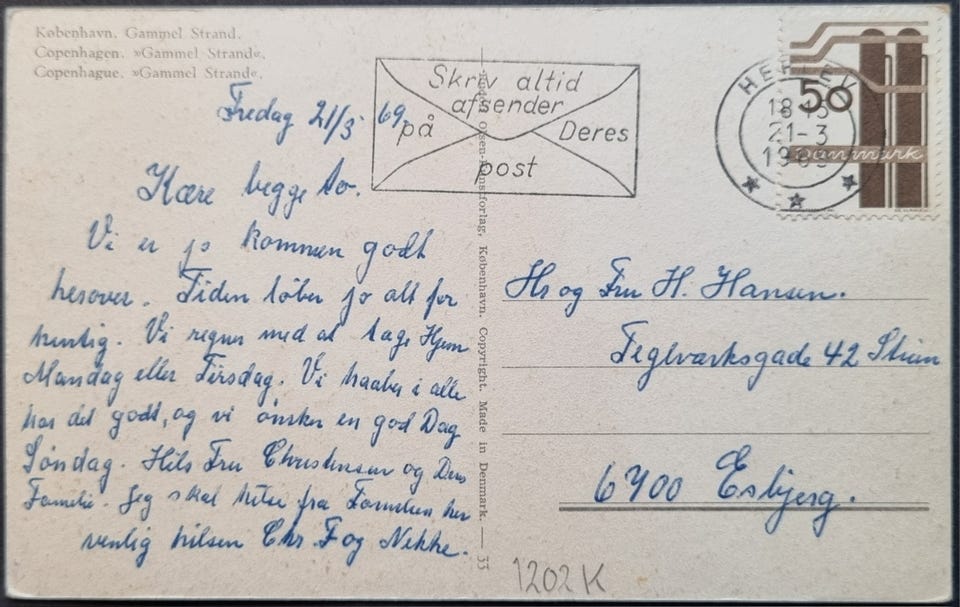 København. Gammel Strand.
Copenhagen. »Gammel Strand«.
Copenhague. »Gammel Strand«.
Fredag 21/3 69.
Kære begge to.
Vi er jo kommen godt
herover. Tiden løber jo alt for
hurtig. Vi regner med at tage Hjem
Mandag eller Tirsdag. Vi haaber i alle
har det godt, og vi ønsker en god Dag
Søndag. Hils Fru Christensen og Deres
Familie. Jeg skal hilse fra Familien her
venlig hilsen Chr. F og
Skriv altid
afsender
på Deres
post
HERLEV
18-19
21-3
1969
50
Danmark
Olsen-Kunstforlag, København. Copyright. Made in Denmark. — 33
Hr og Fru H. Hansen.
Teglværksgade 42 Stuen
6700 Esbjerg.
1202K